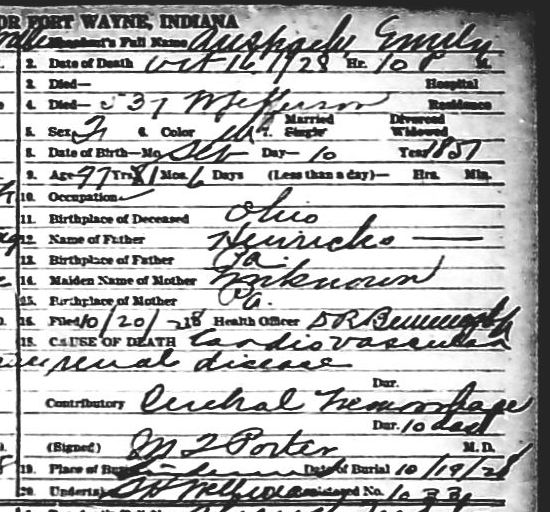 OR FORT WAYNE, INDIANA
Decedent's Full Name Auspach Emily
2. Date of Death Oct 16, 1928 Hr. 10 P M.
3. Died— Hospital
4. Died— 537 W Jefferson Residence
5. Sex F 6. Color W 7. Married Single Divorced Widowed
8. Date of Birth—Mo. Day— 10 Year 1851
9. Age 77 Yrs. 1 Mos. 6 Days (Less than a day)— Hrs. Min.
10. Occupation
11. Birthplace of Deceased Ohio
12. Name of Father Heinricks —
13. Birthplace of Father Pa.
14. Maiden Name of Mother Unknown
15. Birthplace of Mother Pa.
16. Filed 10/20/28 Health Officer
18. CAUSE OF DEATH Cardiovascular
renal disease
Dur.
Contributory Cerebral hemorrhage
Dur. 10 days
(Signed) Porter M. D.
19. Place of Burial Date of Burial 10/19/28
20. Undertaker No.